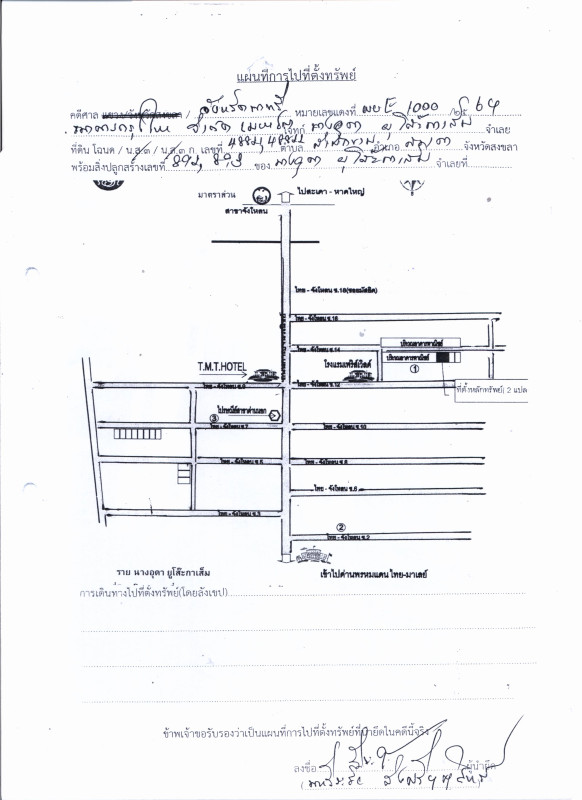 แผนที่การไปที่ตั้งทรัพย์
คดีศาล แขวง/จังหวัดสงขลา / จังหวัดนาทวี หมายเลขแดงที่ ผบE 1000 /๒๕ 64
ธนาคารกรุงไทย จำกัด (มหาชน) โจทก์ นางอุดา ยูโส๊ะกาเส็ม จำเลย
ที่ดิน โฉนด / น.ส.๓ / น.ส.๓ ก. เลขที่ ตำบล สำนักขาม อำเภอ สะเดา จังหวัดสงขลา
พร้อมสิ่งปลูกสร้างเลขที่ ของ นางอุดา ยูโส๊ะกาเส็ม จำเลยที่
มาตราส่วน ไปสะเดา - หาดใหญ่
สาขาจังโหลน
ไทย - จังโหลน ซ.18(ซอยมัสยิด)
ไทย - จังโหลน ซ.16
ไทย - จังโหลน ซ.14
บริเวณอาคารพาณิชย์
บริเวณอาคารพาณิชย์
T.M.T.HOTEL
โรงแรมเฟิร์สเวิลด์
①
ไทย - จังโหลน ซ.9
ไทย - จังโหลน ซ.12
ที่ตั้งหลักทรัพย์ 2 แปลง
ไปรษณีย์สาขาด่านนอก
③
ไทย - จังโหลน ซ.7
ไทย - จังโหลน ซ.10
ไทย - จังโหลน ซ.5
ไทย - จังโหลน ซ.8
ไทย - จังโหลน ซ.6
ไทย - จังโหลน ซ.3
②
ไทย - จังโหลน ซ.2
ราย นางอุดา ยูโส๊ะกาเส็ม
เข้าไปด่านพรหมแดน ไทย-มาเลย์
การเดินทางไปที่ตั้งทรัพย์(โดยสังเขป)
ข้าพเจ้าขอรับรองว่าเป็นแผนที่การไปที่ตั้งทรัพย์ที่นำยึดในคดีนี้จริง
ลงชื่อ ผู้นำยึด